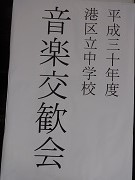 平成三十年度
港区立中学校
音楽交歓会